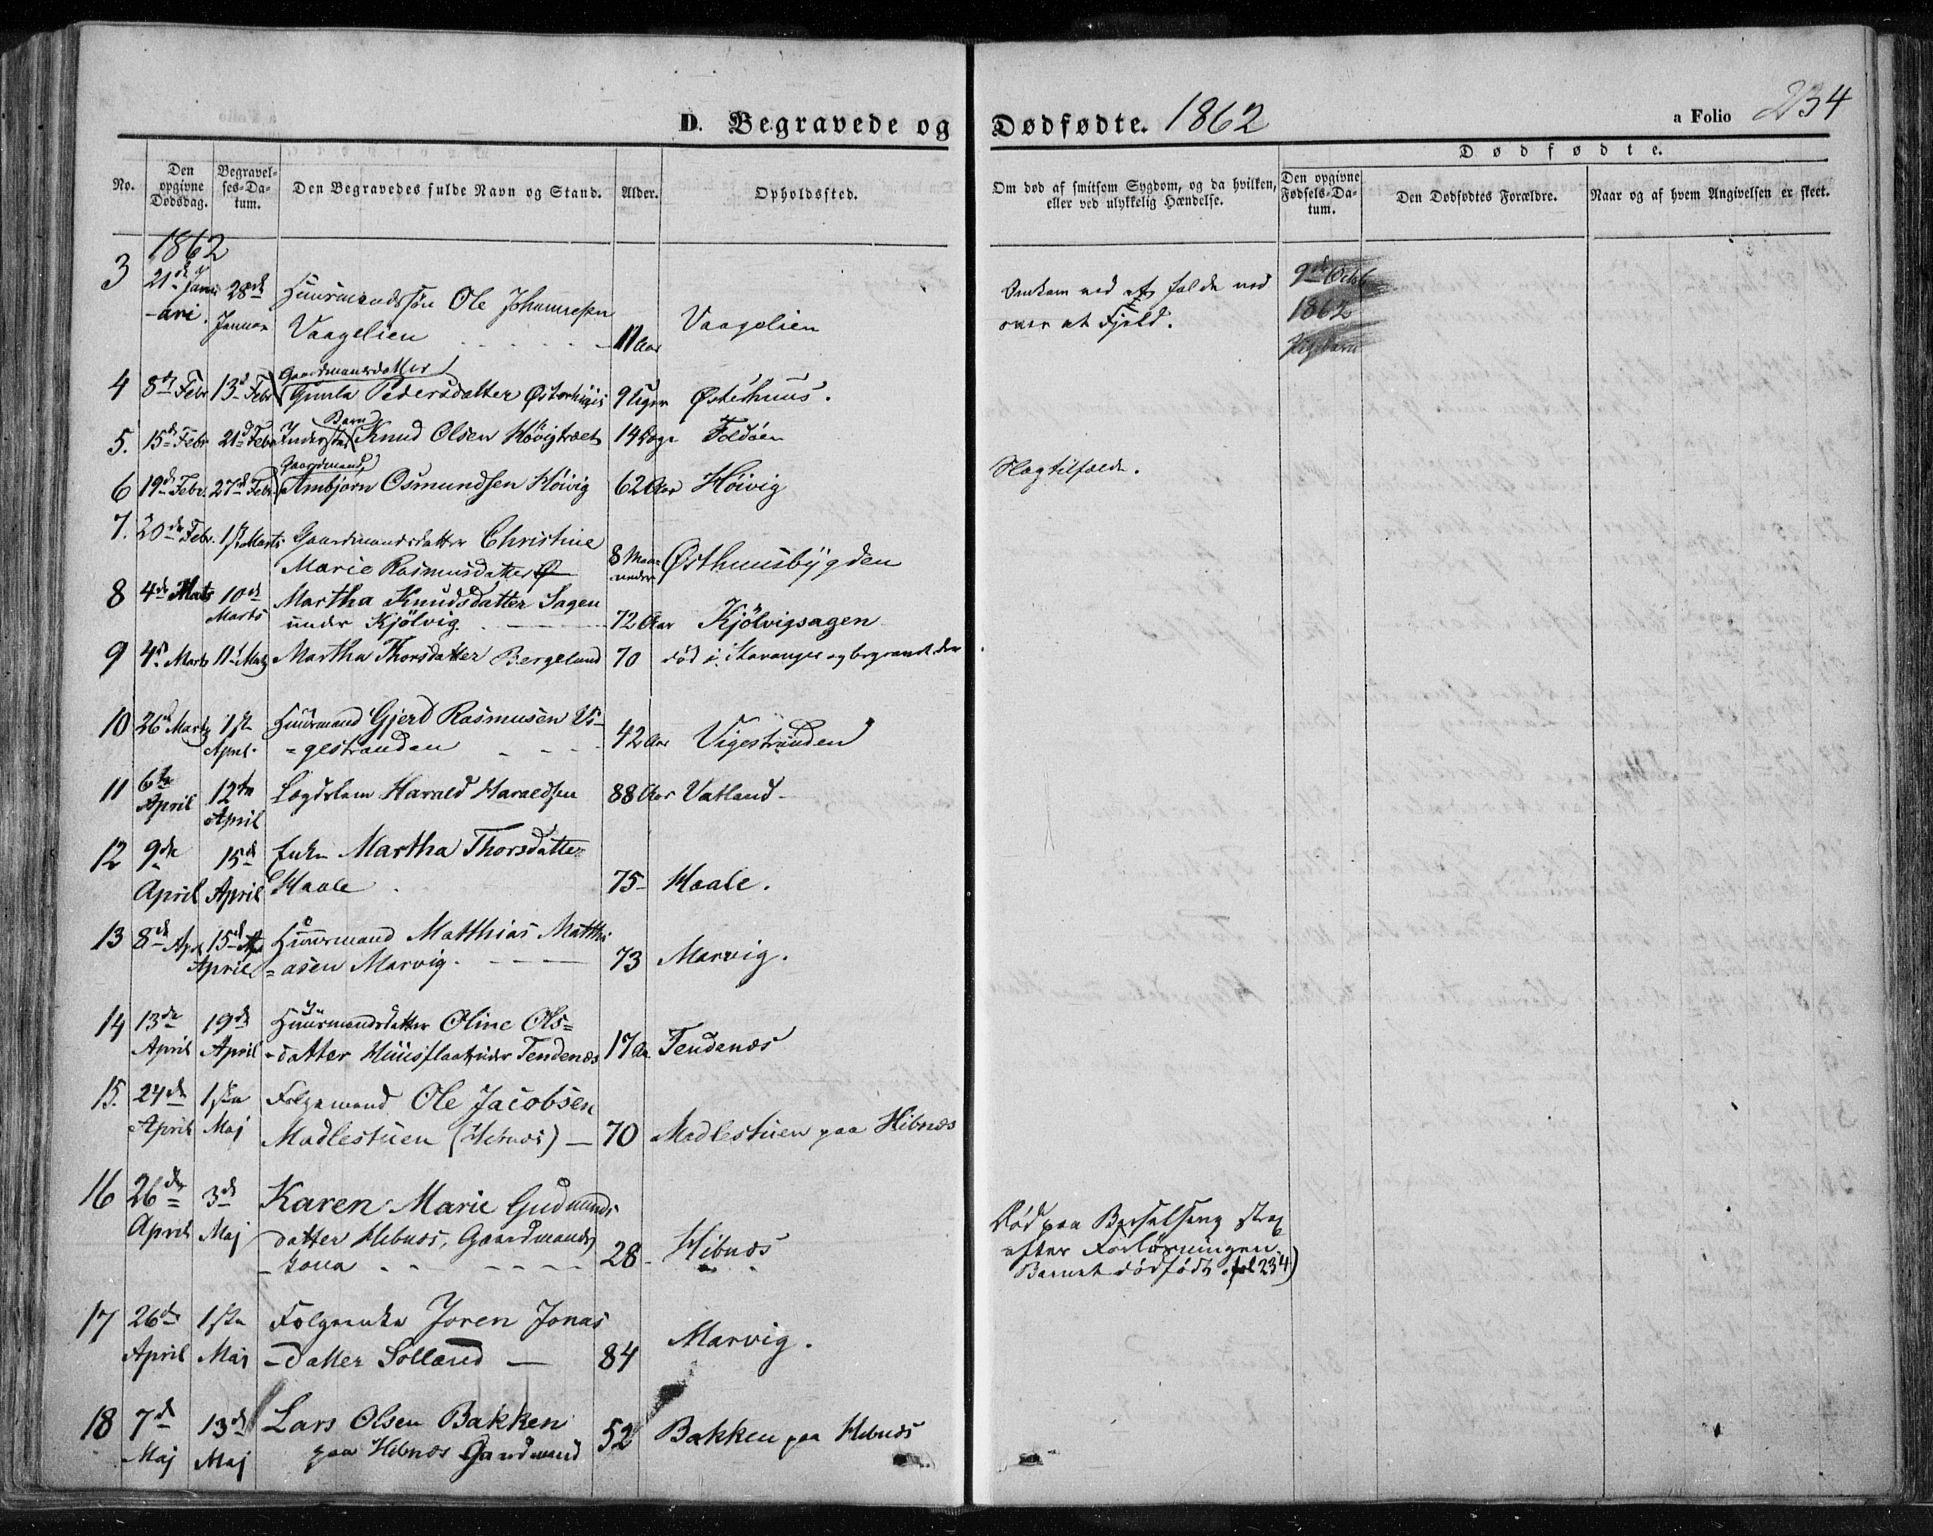 D. Begravede og Dødfødte. 1862 a Folio 234
Dødfødte.
No.
Den opgivne Dødsdag.
Begravelses-Datum.
Den Begravedes fulde Navn og Stand.
Alder.
Opholdssted.
Om død af smitsom Sygdom, og da hvilken, eller ved ulykkelig Hændelse.
Den opgivne Fødsels-Datum.
Den Dødfødtes Forældre.
Naar og af hvem Angivelsen er skeet.
1862
3 21de Janu 28de Huusmandssøn Ole Johannesen
-ari. Januar Vaagelien 11 Aar Vaagelien
Omkom ved at falde ned
over et Fjeld.
9de Octob
1862
Gaardmandsdatter
4 8de Febr 13de Febr Gunla Pedersdatter Østerhuus 9 Uger Østehuus.
Barn
5. 15de Febr 21de Febr Inderster Knud Olsen Høvigtræet 14 Dage Foldøen
Gaardmand
6 19de Febr. 27de Febr. Ambjørn Osmundsen Høivig 62 Aar Høivig
Slagtilfælde.
7. 20de Febr. 1ste Marts Gaardmandsdatter Christine
Marie Rasmusdatter 8 Maaneder Østhuusbygden
8 4de Marts 10de Martha Knudsdatter Sagen
Marts under Kjølvig 72 Aar Kjølvigsagen
9 4de Marts 11te Marts Martha Thorsdatter Bergeland 70 død i Stavanger og begravet der
10 26de Marts 1ste Huusmand Gjerd Rasmusen Vi-
April. -gestranden 42 Aar Vigestranden
11 6te 12te Lægdslem Harald Haraldsen 88 Aar Vatland
April April
12 9de 15de Enke Martha Thorsdatter
April April Haale 75 Haale.
13 8de Apr 15de Huusmand Matthias Matthi
April -asen Marvig. 73 Marvig.
14 13de 19de Huusmandsdatter Oline Ols-
April April -datter Huusflaat under Tendenæs 17 Aar Tendenæs
15. 24de 1ste Folgemand Ole Jacobsen
April Maj Madlestuen (Hebnæs) 70 Madlestuen paa Hibnæs
16 26de 3de Karen Marie Gudmunds
April Maj datter Hebnæs, Gaardmands
-kone 28 Hibnæs
Død paa Barselseng strax
efter Forløsningen.
Barnet dødfødt. fol 234)
17 26de 1ste Folgeenke Joren Jonas
April Maj -datter Solland 84 Marvig.
18 7de 13de Lars Olsen Bakken
Maj Maj paa Hebnæs Gaardmand 52 Bakken paa Hebnæs